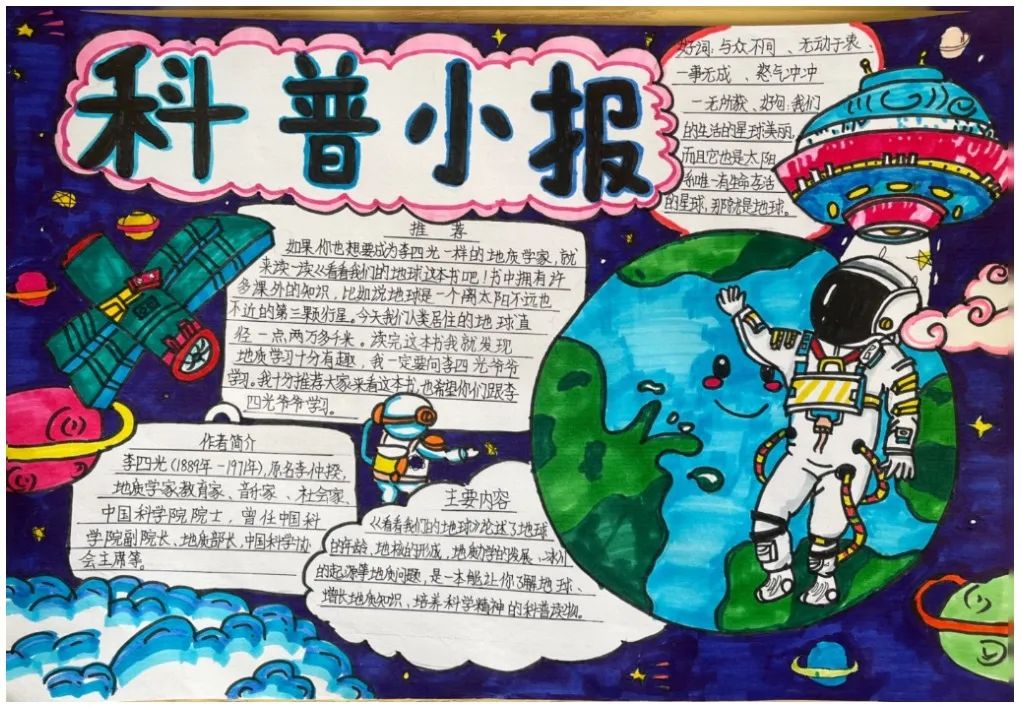 科普小报
好词:与众不同、无动于衷、
一事无成、怒气冲冲
一无所获、好句:我们
的生活的星球美丽,
而且它也是太阳
系唯一有生命存活
的星球,那就是地球。
推 荐
如果你也想要成为李四光一样的地质学家,就
来读一读《看看我们的地球这本书吧!书中拥有许
多课外的知识,比如说地球是一个离太阳不远也
不近的第三颗行星。今天我们人类居住的地球直
径一点两万多千米。读完这本书我就发现
地质学习十分有趣,我一定要向李四光爷爷
学习。我十分推荐大家来看这本书,也希望你们跟李
四光爷爷学习。
作者简介
李四光(1889年-1971年),原名李仲揆,
地质学家、教育家、音乐家、社会家
中国科学院院士,曾任中国科
学院副院长、地质部长、中国科学协
会主席等。
主要内容
《看看我们的地球》论述了地球
的年龄、地核的形成、地质学的发展、冰川
的起源等地质问题,是一本能让你了解地球、
增长地质知识、培养科学精神的科普读物。